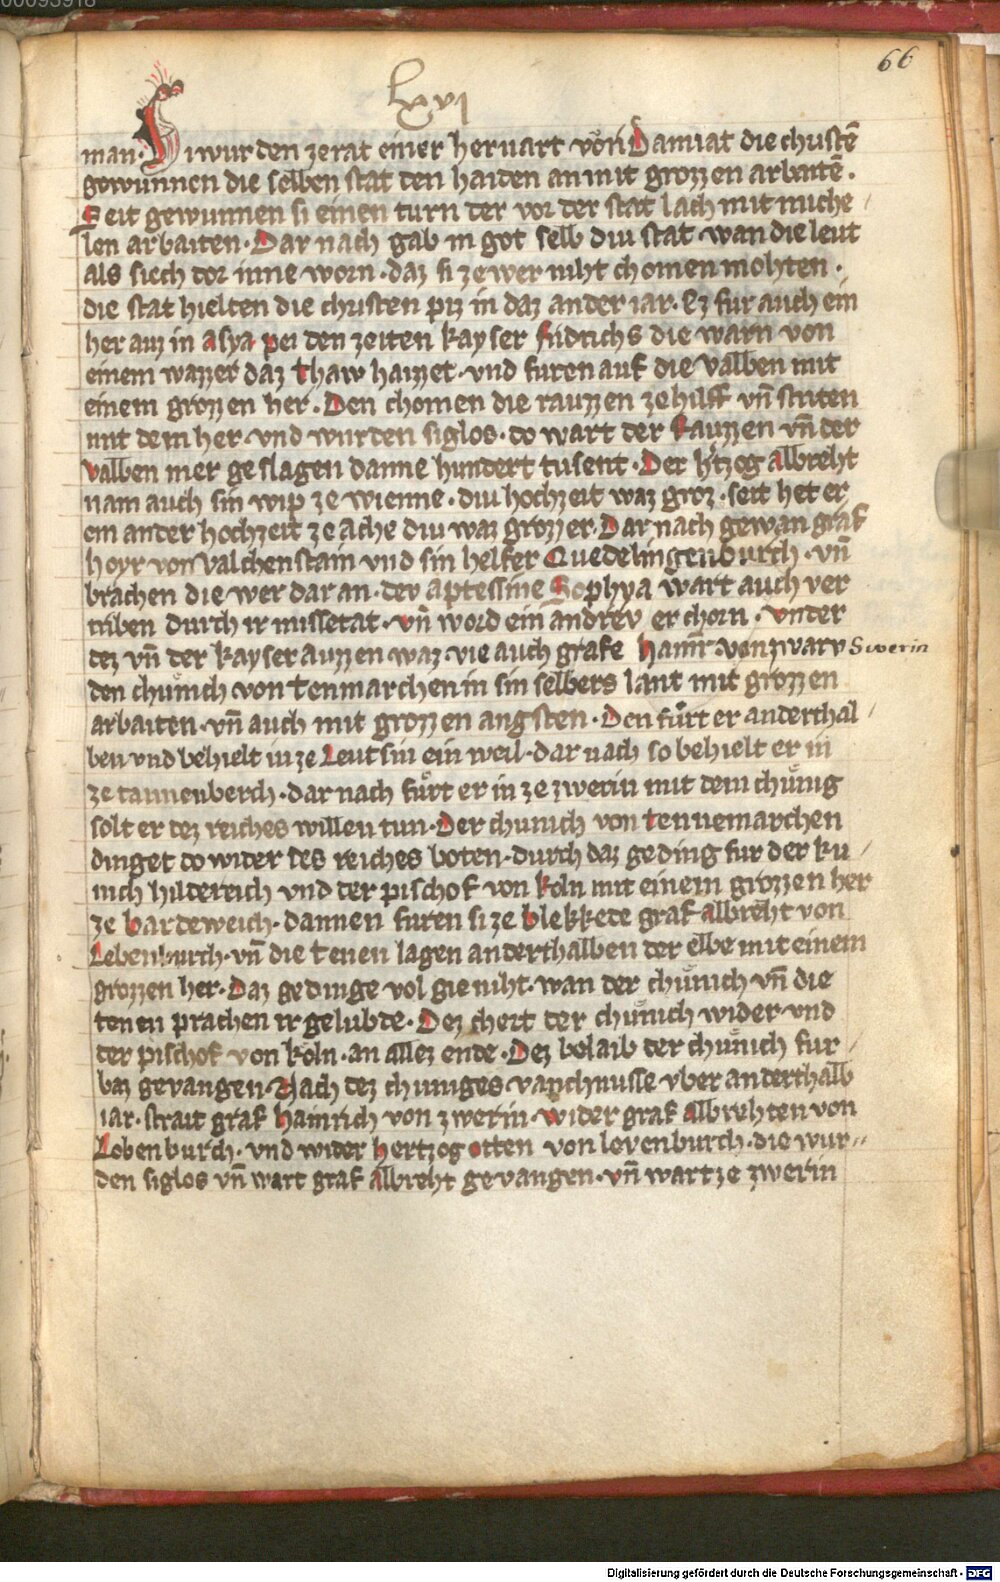 00093918
66
lxvi
man. Si wurden ze rat einer hervart von Damiat die christē
gewunnen die selben stat den haiden an mit grozzen arbaitē.
Seit gewunnen si einen turn der vor der stat lach mit miche/
len arbaiten. Dar nach gab in got selb diu stat. wan die leut
als siech dor inne worn. daz si ze wer niht chomen mohten.
die stat hielten die christen piz in daz ander iar. Ez fur auch ein
her auz in asya pei den zeiten kayser fridrichs die warn von
einem wazzer daz thaw haizzet. vnd furen auf die valben mit
einem grozzen her. Den chomen die rauzzen ze hilff vn̄ striten
mit dem her. vnd wurden siglos. do wart der Rauzzen vn̄ der
valben mer geslagen danne hundert tusent. Der h'tzog albreht
nam auch sin wip ze wienne. diu hochzeit waz groz. seit het er
ein ander hochzeit ze ache diu waz grozzer. Dar nach gewan graf
hoyr von valchenstain vnd sin helfer Quedelingenburch. vn̄
brachen die wer dar an. der aptessine Sophya wart auch ver
triben durch ir missetat. vn̄ word ein andrev er chorn. vnder
dez vn̄ der kayser auzzen waz. vie auch grafe hainr̄ von zwarv Swerin
den chunich von tenmarchen in sin selbers lant mit grozzen
arbaiten. vn̄ auch mit grozzen angsten. Den fůrt er anderthal/
ben vnd behielt in ze Leutsin ein weil. dar nach so behielt er in
ze tannenberch. dar nach fůrt er in ze zwerin mit dem chunig
solt er dez reiches willen tun. Der chunich von tennemarchen
dinget do wider des reiches boten. durch daz geding fur der ku/
nich hildereich vnd der pischof von koln mit einem grozzen her
ze bardeweich. dannen furen si ze blekkede graf albreht von
Lebenburch. vn̄ die tenen lagen anderthalben der elbe mit einem
grozzen her. Daz gedinge vol gie niht. wan der chunich vn̄ die
tenen prachen ir gelubde. Dez chert der chunich wider. vnd
der pischof von koln. an allez ende. Dez bolaib der chunich fur/
baz gevangen. Nach dez chuniges vanchnusse vber anderthalb
iar. strait graf hainrich von zwerin. wider graf albrehten von
Lobenburch. vnd wider hertzog otten von lovenburch. die wur//
den siglos vn̄ wart graf albreht gevangen. vn̄ wart ze zwerin
Digitalisierung gefördert durch die Deutsche Forschungsgemeinschaft - DFG